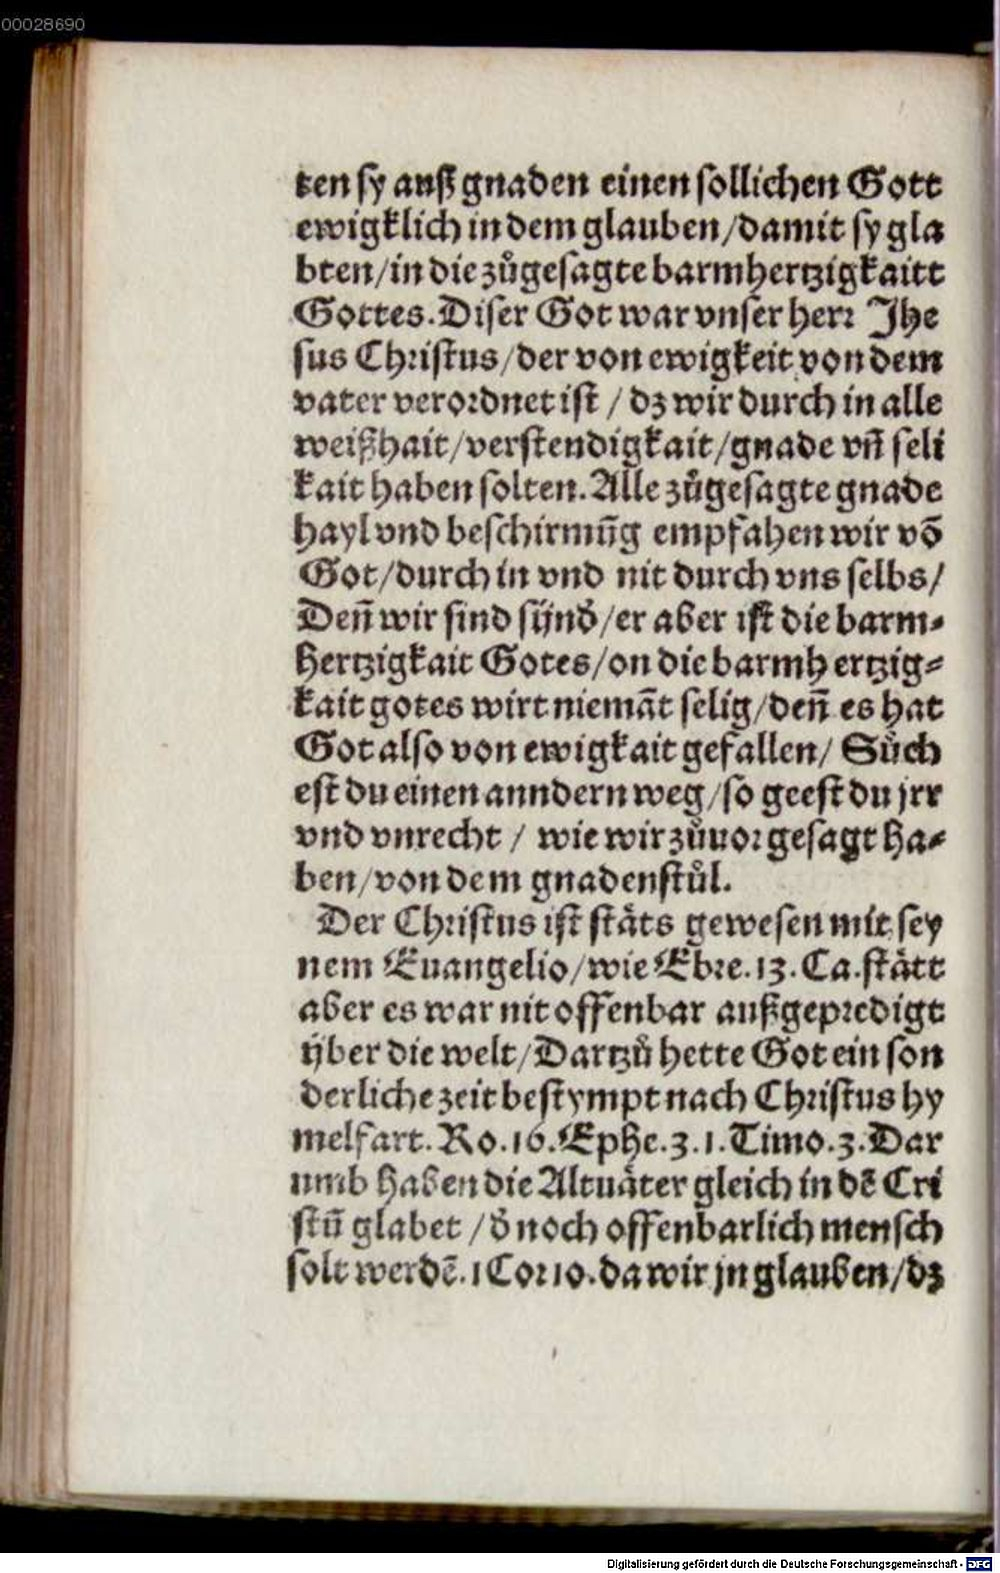 00028690
ten sy auß gnaden einen sollichen Gott
ewigklich in dem glauben/damit sy gla
bten/in die zůgesagte barmhertzigkaitt
Gottes. Diser Got war vnser herr Jhe
sus Christus/der von ewigkeit von dem
vater verordnet ist / dz wir durch in alle
weißhait/verstendigkait/gnade vñ seli
kait haben solten. Alle zůgesagte gnade
hayl vnd beschirmũg empfahen wir võ
Got/durch in vnd nit durch vns selbs/
Deñ wir sind sünd̓/er aber ist die barm-
hertzigkait Gotes/on die barmhertzig-
kait gotes wirt niemãt selig/deñ es hat
Got also von ewigkait gefallen/ Sůch
est du einen anndern weg/so geest du jrr
vnd vnrecht / wie wir zůuor gesagt ha-
ben/von dem gnadenstůl.
Der Christus ist stäts gewesen mit sey
nem Euangelio/wie Ebre. 13. Ca. stätt
aber es war nit offenbar außgepredigt
über die welt/Dartzů hette Got ein son
derliche zeit bestympt nach Christus hy
melfart. Ro. 16. Ephe. 3. 1. Timo. 3. Dar
umb haben die Altuäter gleich in dẽ Cri
stũ glabet /d̓ noch offenbarlich mensch
solt werdẽ. 1 Cor 10. da wir jn glauben/dz
Digitalisierung gefördert durch die Deutsche Forschungsgemeinschaft - DFG